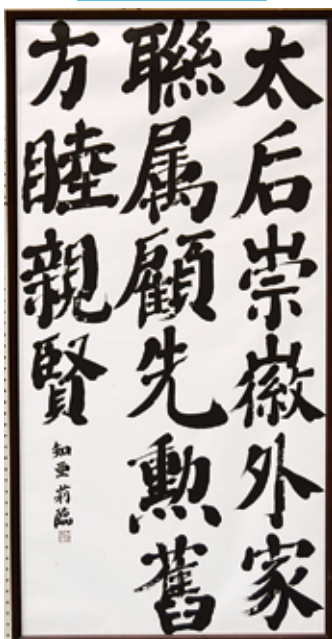 太后崇徽外家
聯属顧先勲舊
方睦親賢
知亜莉臨